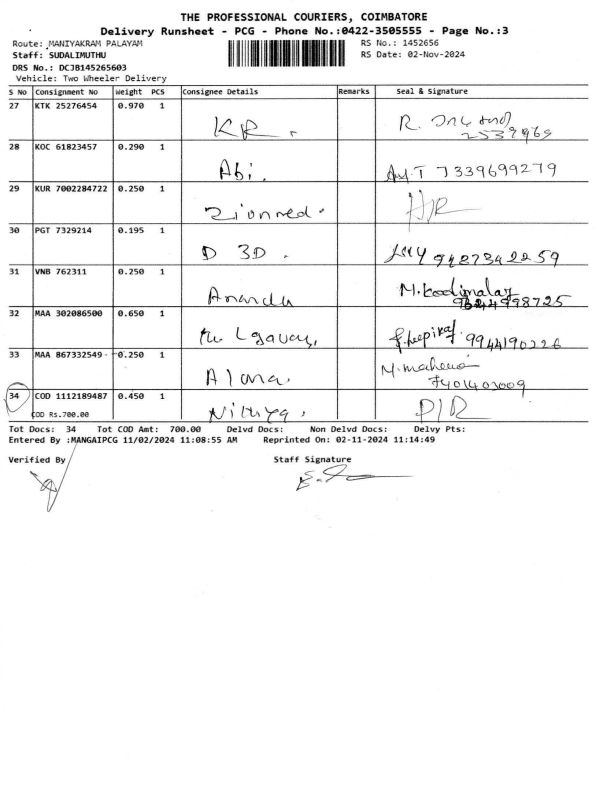 THE PROFESSIONAL COURIERS, COIMBATORE
Delivery Runsheet - PCG - Phone No.:0422-3505555 - Page No.:3
Route: MANIYAKRAM PALAYAM RS No.: 1452656
Staff: SUDALIMUTHU RS Date: 02-Nov-2024
DRS No.: DCJB145265603
Vehicle: Two Wheeler Delivery
S No Consignment No Weight PCS Consignee Details Remarks Seal & Signature
27 KTK 25276454 0.970 1
KR. R.
28 KOC 61823457 0.290 1
Abi. 7339699279
29 KUR 7002284722 0.250 1
Zionned.
30 PGT 7329214 0.195 1
D 3D. 9487342259
31 VNB 762311 0.250 1
Ananda M.Kodimalar
32 MAA 302086500 0.650 1
9944190226
33 MAA 867332549 0.250 1
Alana. 7401403009
34 COD 1112189487 0.450 1
COD Rs.700.00 Nithya. D/R
Tot Docs: 34 Tot COD Amt: 700.00 Delvd Docs: Non Delvd Docs: Delvy Pts:
Entered By :MANGAIPCG 11/02/2024 11:08:55 AM Reprinted On: 02-11-2024 11:14:49
Verified By Staff Signature